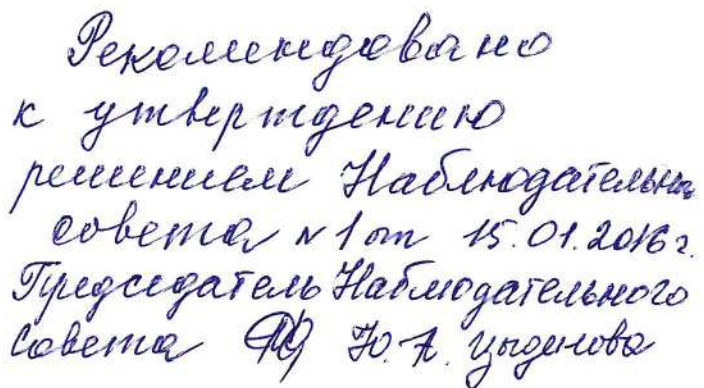 Рекомендовано
к утверждению
решением Наблюдательн
совета №1 от 15.01.2016г.
Председатель Наблюдательного
совета Ю.А. Цыденова